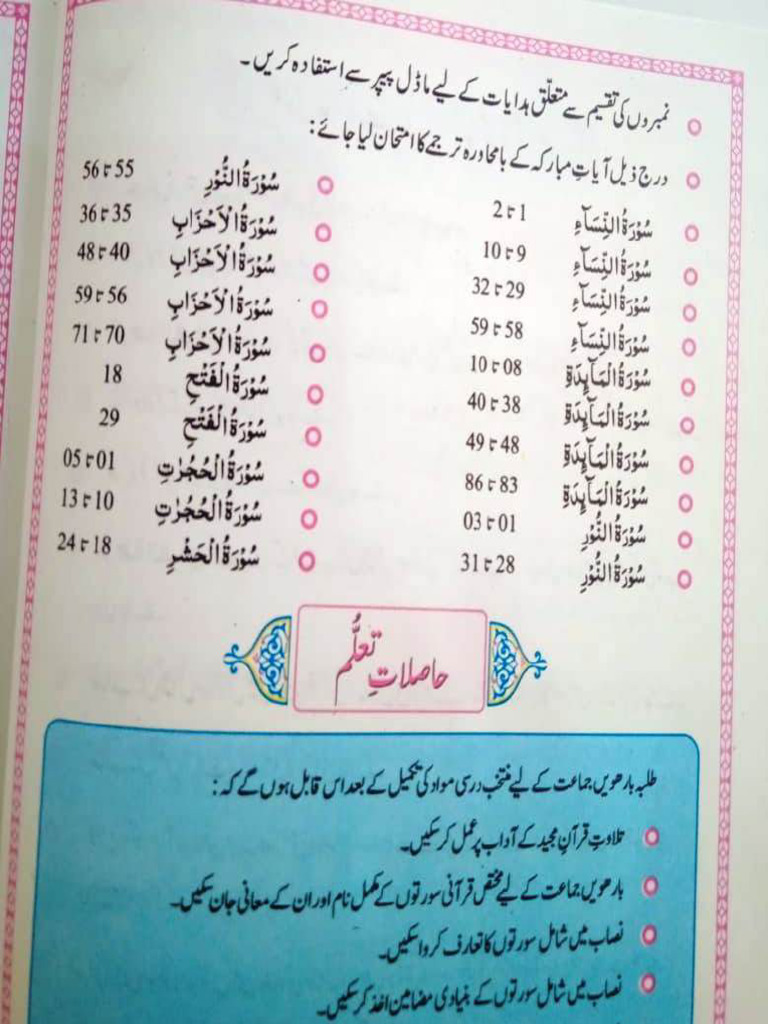 نمبروں کی تقسیم سے متعلّق ہدایات کے لیے ماڈل پیپر سے استفادہ کریں۔
درج ذیل آیاتِ مبارکہ کے بامحاورہ ترجمے کا امتحان لیا جائے:
سُوْرَةُ النِّسَآءِ 1 تا 2
سُوْرَةُ النِّسَآءِ 9 تا 10
سُوْرَةُ النِّسَآءِ 29 تا 32
سُوْرَةُ النِّسَآءِ 58 تا 59
سُوْرَةُ الْمَآىِٕدَةِ 08 تا 10
سُوْرَةُ الْمَآىِٕدَةِ 38 تا 40
سُوْرَةُ الْمَآىِٕدَةِ 48 تا 49
سُوْرَةُ الْمَآىِٕدَةِ 83 تا 86
سُوْرَةُ النُّوْرِ 01 تا 03
سُوْرَةُ النُّوْرِ 28 تا 31
سُوْرَةُ النُّوْرِ 55 تا 56
سُوْرَةُ الْاَحْزَابِ 35 تا 36
سُوْرَةُ الْاَحْزَابِ 40 تا 48
سُوْرَةُ الْاَحْزَابِ 56 تا 59
سُوْرَةُ الْاَحْزَابِ 70 تا 71
سُوْرَةُ الْفَتْحِ 18
سُوْرَةُ الْفَتْحِ 29
سُوْرَةُ الْحُجُرٰتِ 01 تا 05
سُوْرَةُ الْحُجُرٰتِ 10 تا 13
سُوْرَةُ الْحَشْرِ 18 تا 24
حاصلاتِ تعلُّم
طلبہ بارھویں جماعت کے لیے منتخب درسی مواد کی تکمیل کے بعد اس قابل ہوں گے کہ:
تلاوتِ قرآنِ مجید کے آداب پر عمل کر سکیں۔
بارھویں جماعت کے لیے مختص قرآنی سورتوں کے مکمل نام اور ان کے معانی جان سکیں۔
نصاب میں شامل سورتوں کا تعارف کروا سکیں۔
نصاب میں شامل سورتوں کے بنیادی مضامین اخذ کر سکیں۔